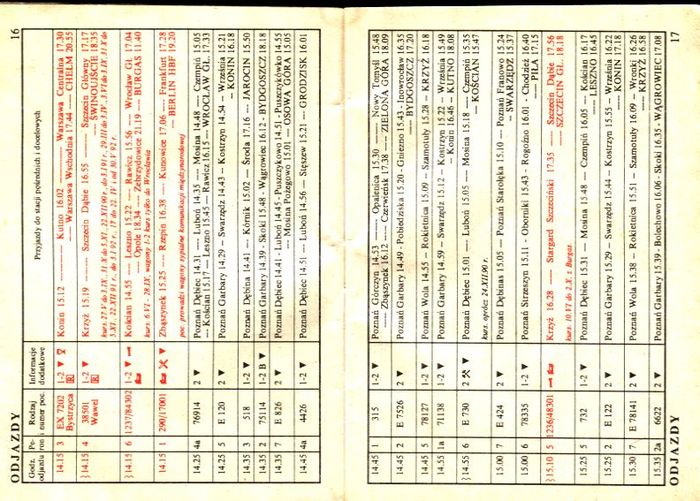 ODJAZDY 16
Godz. odjazdu Pe- ron Rodzaj i numer poc. Informacje dodatkowe Przyjazdy do stacji pośrednich i docelowych
14.15 3 EX 7202 1-2 Konin 15.12 Kutno 16.02 Warszawa Centralna 17.30
Bystrzyca Warszawa Wschodnia 17.44 — CHEŁM 20.55
14.15 4 38501 1-2 Krzyż 15.19 Szczecin Dąbie 16.55 Szczecin Główny 17.17
Wawel ŚWINOUJŚCIE 18.35
14.15 6 1237/84302 1-2 Kościan 14.55 Leszno 15.22 — Rawicz 15.56 — Wrocław Gł. 17.04
Opole 18.34 — Zebrzydowice 21.19 BURGAS 11.40
14.15 1 290/17001 Zbąszynek 15.25 — Rzepin 16.38 — Kunowice 17.06 — Frankfurt 17.28
BERLIN HBF 19.20
poc. prowadzi wagony sypialne komunikacji międzynarodowej
14.25 4a 76914 2 Poznań Dębiec 14.31 — Luboń 14.35 — Mosina 14.48 — Czempiń 15.05
Kościan 15.17 — Leszno 15.45 — Rawicz 16.15 — WROCŁAW GŁ. 17.33
14.25 5 E 120 2 Poznań Garbary 14.29 — Swarzędz 14.43 — Kostrzyn 14.54 — Września 15.21
KONIN 16.18
14.35 3 518 1-2 Poznań Dębina 14.41 — Kórnik 15.02 — Środa 17.16 — JAROCIN 15.50
14.35 2 75114 1-2 B Poznań Garbary 14.39 - Skoki 15.48 - Wągrowiec 16.12 - BYDGOSZCZ 18.18
14.35 7 E 826 2 Poznań Dębiec 14.41 - Luboń 14.45 - Puszczykowo 14.51 - Puszczykówko 14.55
Mosina Pożegowo 15.01 — OSOWA GÓRA 15.05
14.45 4a 4426 1-2 Poznań Dębiec 14.51 — Luboń 14.56 — Stęszew 15.21 — GRODZISK 16.01
ODJAZDY 17
14.45 1 315 1-2 Poznań Górczyn 14.53 — Opalenica 15.30 — Nowy Tomyśl 15.48
Zbąszynek 16.12 — Czerwieńsk 17.38 — ZIELONA GÓRA 18.09
14.45 2 E 7526 2 Poznań Garbary 14.49 - Pobiedziska 15.20 - Gniezno 15.43 - Inowrocław 16.35
BYDGOSZCZ 17.20
14.45 5 78127 1-2 Poznań Wola 14.55 — Rokietnica 15.09 — Szamotuły 15.28 — KRZYŻ 16.18
14.55 1a 71138 1-2 Poznań Garbary 14.59 — Swarzędz 15.12 — Kostrzyn 15.22 — Września 15.49
Konin 16.46 — KUTNO 18.08
14.55 6 E 730 2 Poznań Dębiec 15.01 — Luboń 15.05 — Mosina 15.18 — Czempiń 15.35
KOŚCIAN 15.47
kurs. oprócz 24.XII.90 r.
15.00 7 E 424 2 Poznań Dębina 15.05 — Poznań Starołęka 15.10 — Poznań Franowo 15.24
SWARZĘDZ 15.37
15.00 6 78335 1-2 Poznań Strzeszyn 15.11 - Oborniki 15.43 - Rogoźno 16.01 - Chodzież 16.40
PIŁA 17.15
15.10 5 1236/48301 Krzyż 16.28 — Stargard Szczeciński 17.35 — Szczecin Dąbie 17.56
SZCZECIN GŁ. 18.18
kurs. 10.VI do 2.X. z Burgas
15.25 5 732 1-2 Poznań Dębiec 15.31 — Mosina 15.48 — Czempiń 16.05 — Kościan 16.17
LESZNO 16.45
15.25 2 E 122 2 Poznań Garbary 15.29 — Swarzędz 15.44 — Kostrzyn 15.55 — Września 16.22
KONIN 17.18
15.30 7 E 78141 2 Poznań Wola 15.38 — Rokietnica 15.51 — Szamotuły 16.09 — Wronki 16.26
KRZYŻ 16.58
15.35 2a 6622 2 Poznań Garbary 15.39 - Bolechowo 16.06 - Skoki 16.35 - WĄGROWIEC 17.08